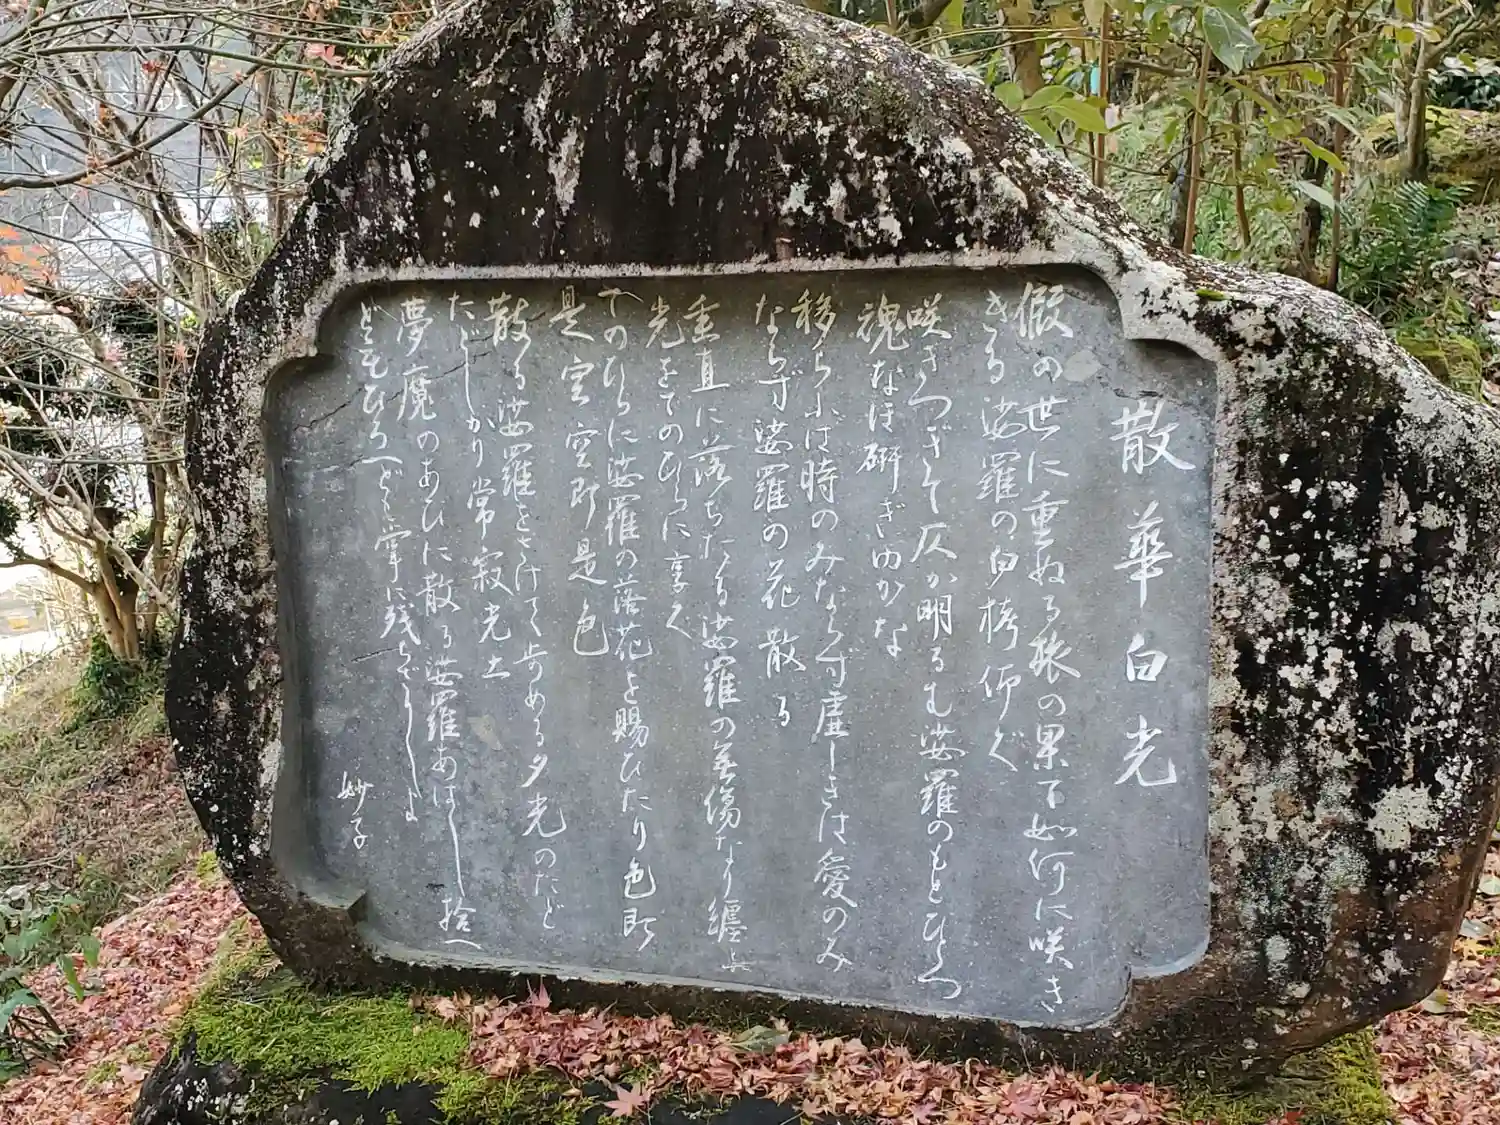 散華白光
假の世に重ぬる旅の果て如何に咲き
きる娑羅の白椿仰ぐ
咲きつぎて仄か明るむ娑羅のもとひとつ
魂なほ研ぎゆかな
移らふは時のみならず虚しきは愛のみ
ならず娑羅の花散る
垂直に落ちたる娑羅の無傷なり纏ふ
光をてのひらに享く
てのひらに娑羅の落花を賜ひたり色即
是空空即是色
散る娑羅をさけて歩める夕光のただ
たどしかり常寂光土
夢魔のあひに散る娑羅あはし拾へ
ども拾へども掌に残らざりしよ
妙子